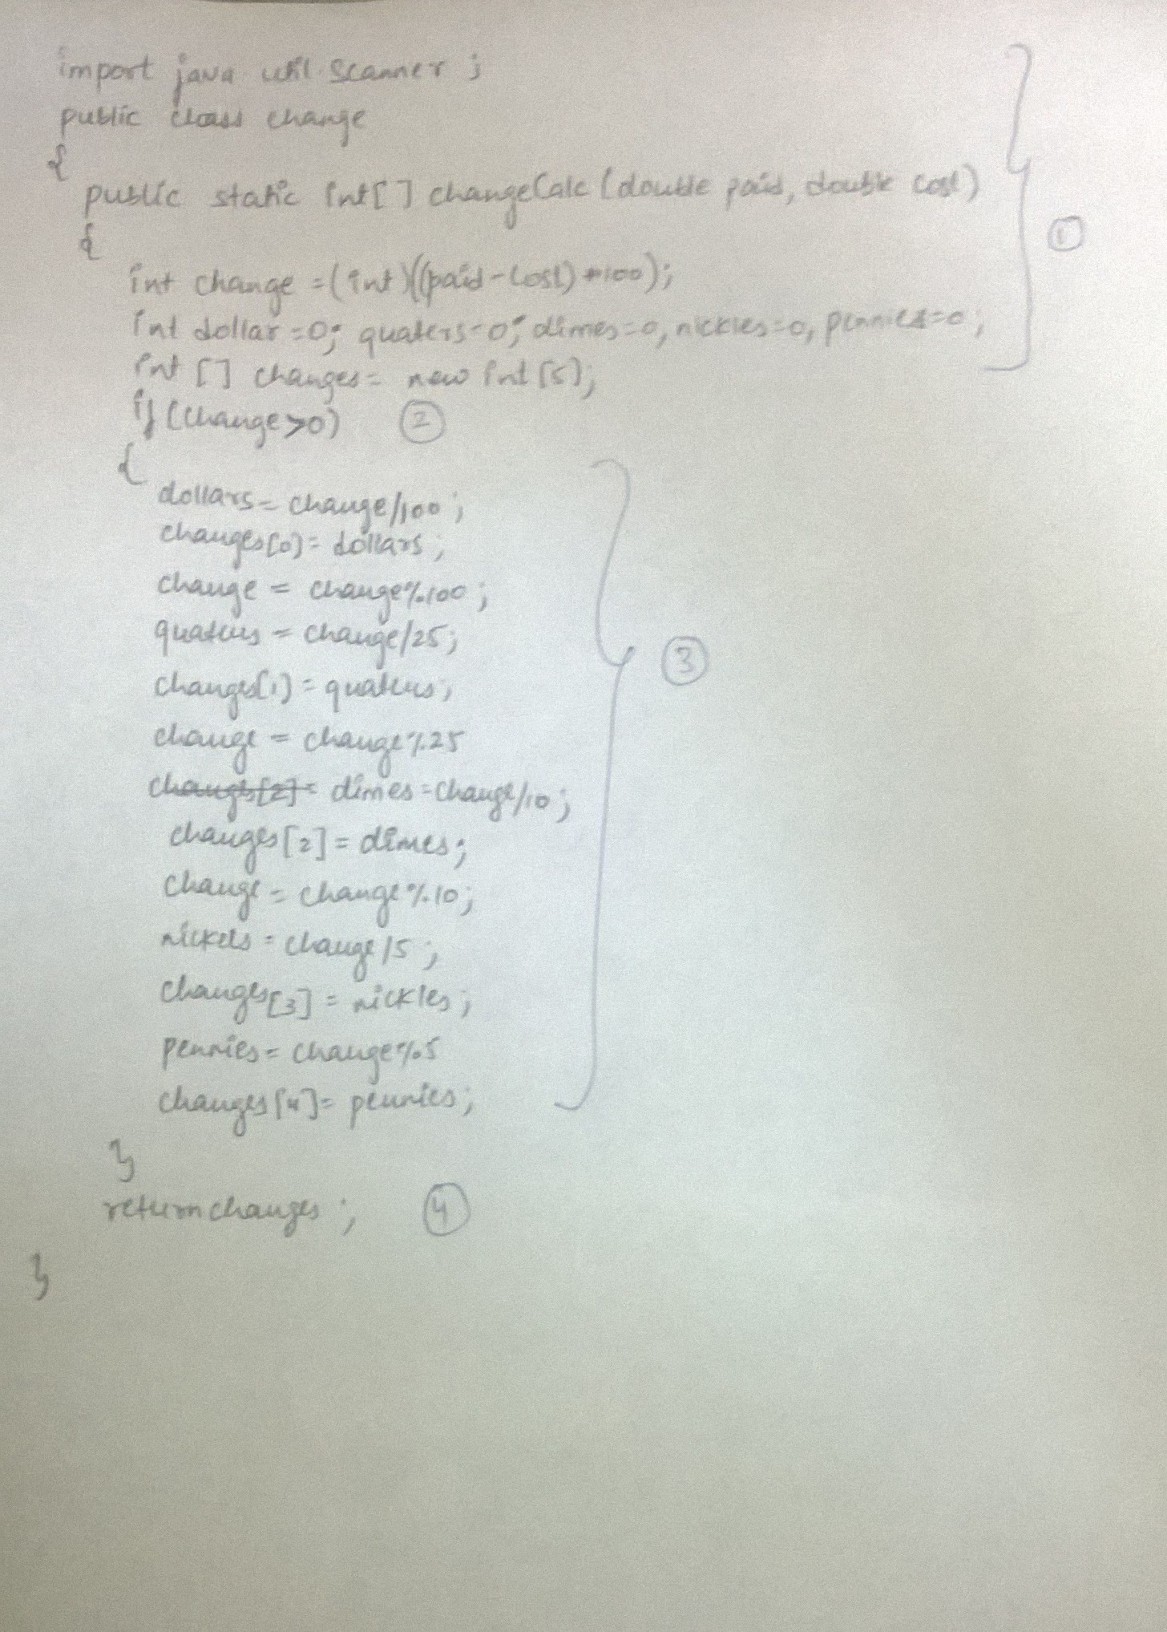 import java.util.Scanner ;
public class change
{
public static int[ ] changeCalc (double paid, double cost)
{
①
int change =(int)((paid-cost)*100);
int dollar=0; quaters=0; dimes=0, nickles=0, pennies=0;
int [ ] changes= new int [5];
if (change>0) ②
{
dollars= change/100;
changes[0]= dollars;
change = change%100;
quaters = change/25;
③
changes[1]= quaters;
change = change%25
changes[2]= dimes=change/10;
changes[2]= dimes;
change = change%10;
nickels = change/5;
changes[3] = nickles;
pennies= change%5
changes[4]= pennies;
}
return changes; ④
}